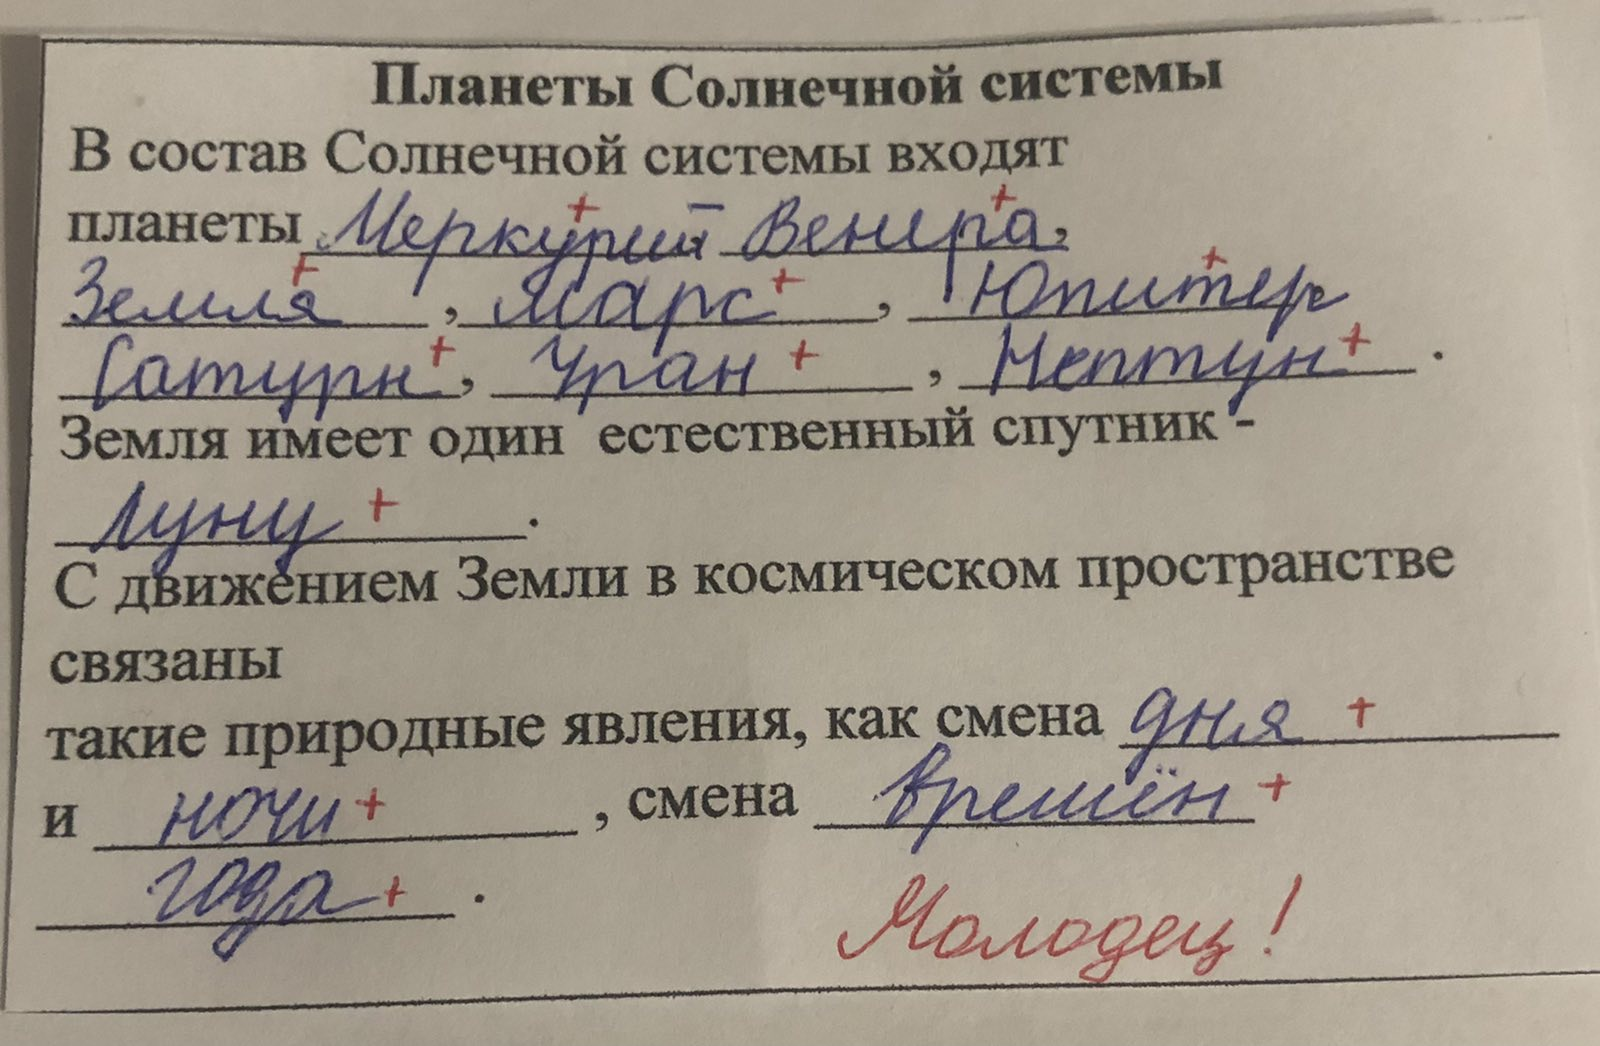 Планеты Солнечной системы
В состав Солнечной системы входят
планеты Меркурий Венера,
Земля + , Марс + , Юпитер +
Сатурн + , Уран + , Нептун + .
Земля имеет один естественный спутник -
Луну + .
С движением Земли в космическом пространстве
связаны
такие природные явления, как смена дня +
и ночи + , смена времён +
года + .
Молодец!